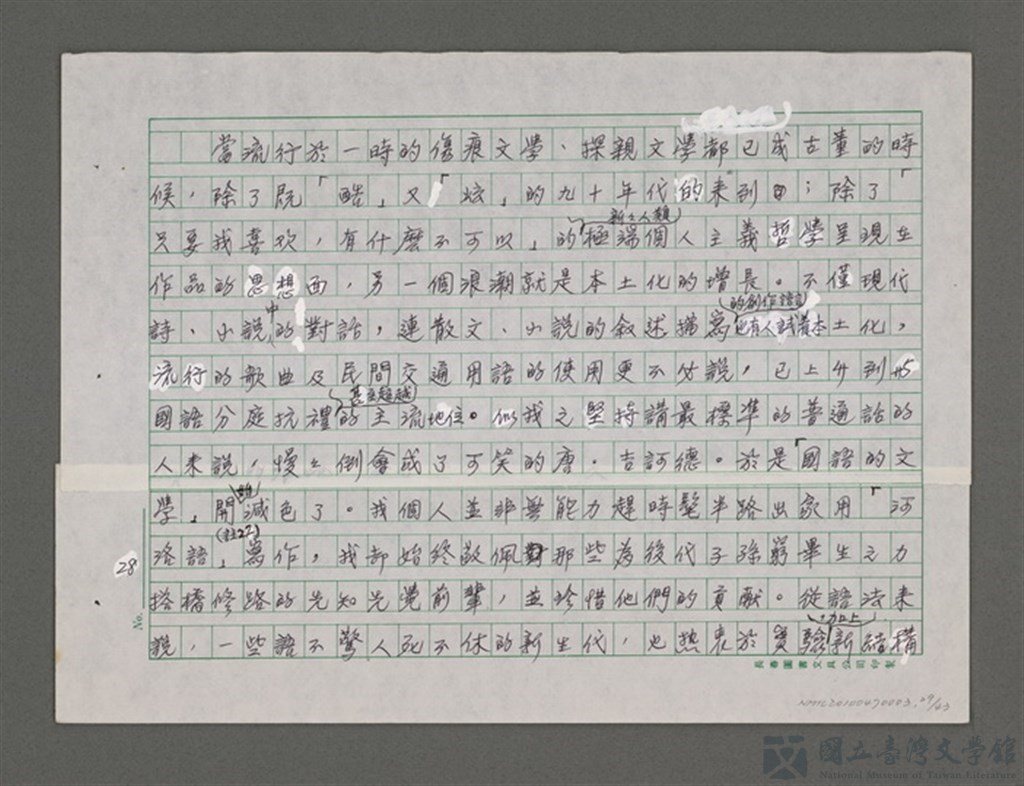 當流行於一時的傷痕文學、探親文學都已成古董的時
候,除了既「酷」又「炫」的九十年代的來到口;除了「
新人類
只要我喜歡,有什麼不可以」的極端個人主義哲學呈現在
作品的思想面,另一個浪潮就是本土化的增長。不僅現代
中
的創作語言
詩、小說的對話,連散文、小說的敘述描寫也有人試着本土化,
流行的歌曲及民間交通用語的使用更不必說,已上升到與
甚至超越
國語分庭抗禮的主流地位。似我之堅持講最標準的普通話的
人來說,慢慢倒會成了可笑的唐.吉訶德。於是「國語的文
學」開始減色了。我個人並非無能力趕時髦半路出家用「河
(註22)
洛語」寫作,我卻始終敬佩對那些為後代子孫窮畢生之力
搭橋修路的先知先覺前輩,並珍惜他們的貢獻。從語法來
加上
說,一些語不驚人死不休的新生代,也熱衷於實驗新結構
28
No.
長春圖書文具公司印製
NMTL20100470003.29/43
國立臺灣文學館
National Museum of Taiwan Literature